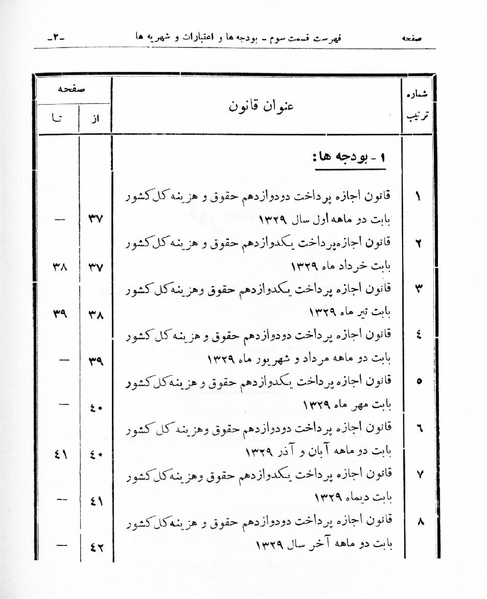 صفحه فهرست قسمت سوم - بودجه ها و اعتبارات و شهریه ها -۲-
شماره ترتیب عنوان قانون صفحه
از تا
۱ - بودجه ها:
۱ قانون اجازه پرداخت دودوازدهم حقوق و هزینه کل کشور
بابت دو ماهه اول سال ۱۳۲۹ ۳۷ —
۲ قانون اجازه پرداخت یکدوازدهم حقوق و هزینه کل کشور
بابت خرداد ماه ۱۳۲۹ ۳۷ ۳۸
۳ قانون اجازه پرداخت یکدوازدهم حقوق وهزینه کل کشور
بابت تیر ماه ۱۳۲۹ ۳۸ ۳۹
۴ قانون اجازه پرداخت دودوازدهم حقوق و هزینه کل کشور
بابت دو ماهه مرداد و شهریور ماه ۱۳۲۹ ۳۹ —
۵ قانون اجازه پرداخت یکدوازدهم حقوق و هزینه کل کشور
بابت مهر ماه ۱۳۲۹ ۴۰ —
۶ قانون اجازه پرداخت دودوازدهم حقوق وهزینه کل کشور
بابت دو ماهه آبان و آذر ۱۳۲۹ ۴۰ ۴۱
۷ قانون اجازه پرداخت یکدوازدهم حقوق وهزینه کل کشور
بابت دیماه ۱۳۲۹ ۴۱ —
۸ قانون اجازه پرداخت دودوازدهم حقوق و هزینه کل کشور
بابت دو ماهه آخر سال ۱۳۲۹ ۴۲ —